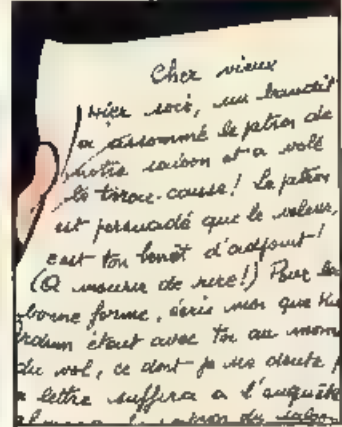 Cher vieux
Hier soir, un bandit
a assommé le patron de
notre saloon et a volé
le tiroir-caisse! Le patron
est persuadé que le voleur,
c'est ton benêt d'adjoint!
(A mourir de rire!) Pour la
bonne forme, écris moi que Ki
était avec toi au mom
du vol, ce dont je ne doute p
lettre suffira a l'enquête
du saloon